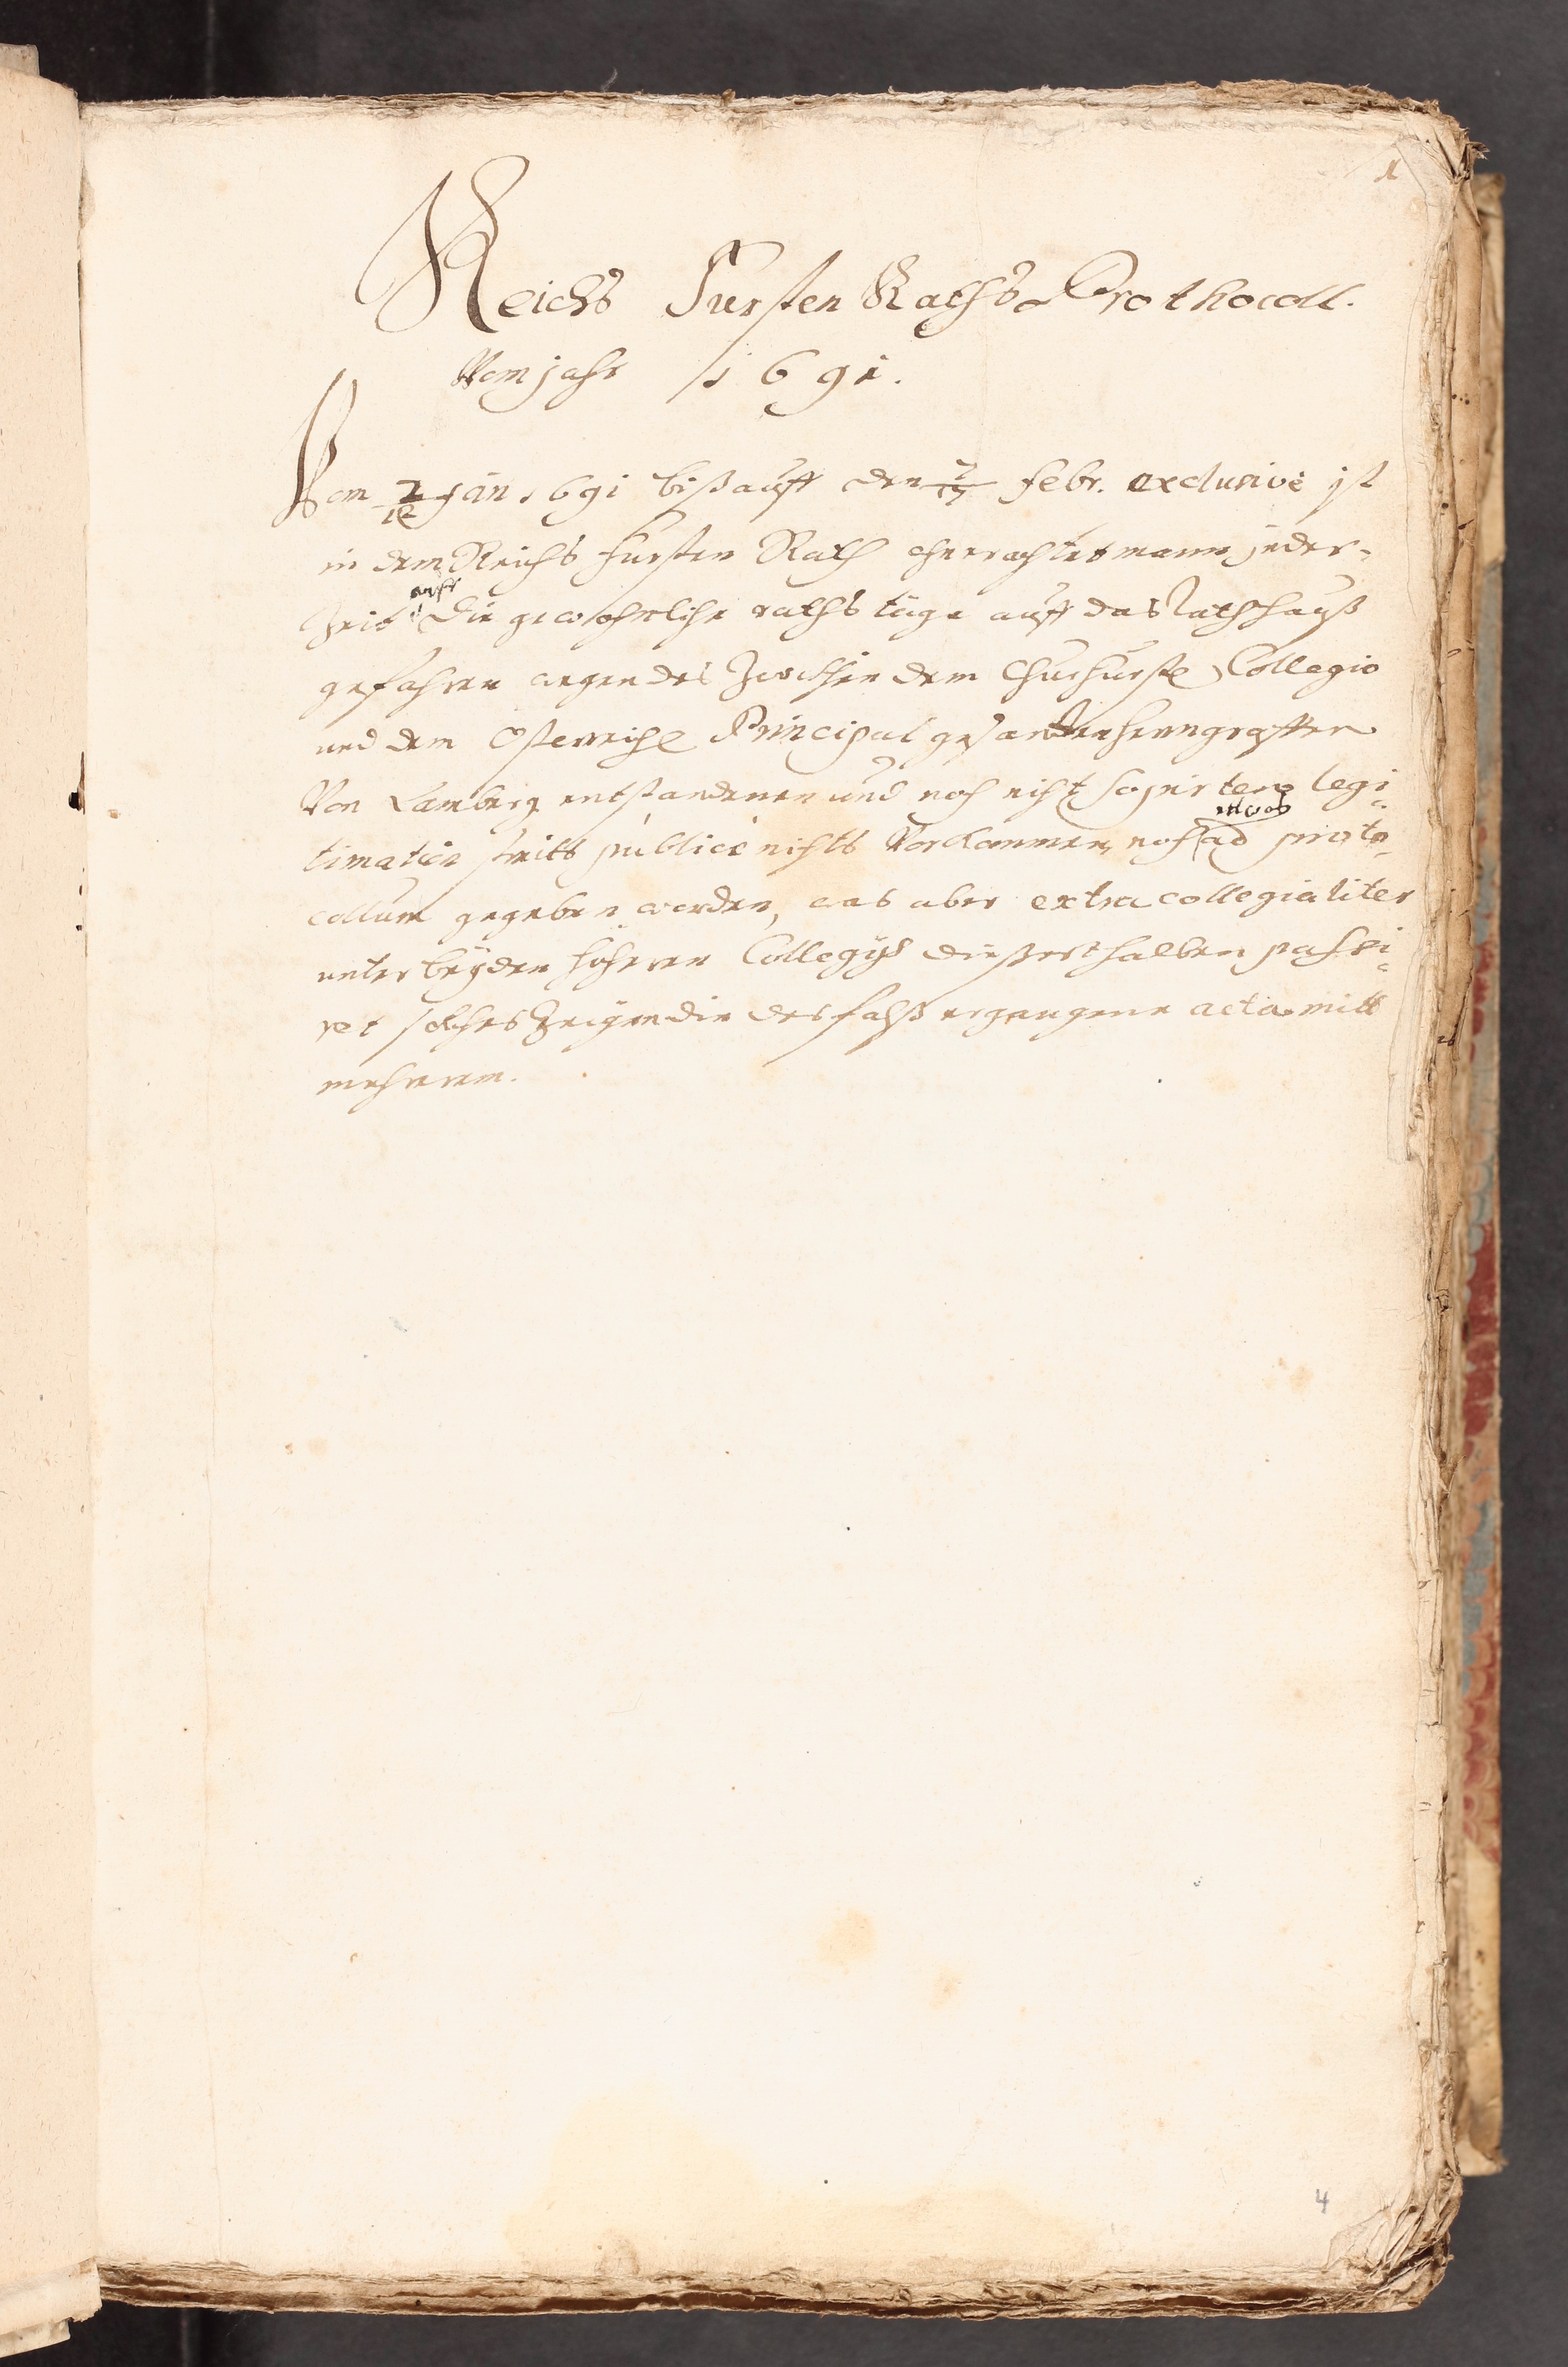 1
Reichs Fursten Raths Prothocoll.
Vom jahr 1691.
Vom 2/12 Jan 1691 biß auff den 7/17 Febr. exclusivè ist
in dem Reichs Fursten Rath ohnerachtet mann jeder-
zeit auff die gewohnliche raths täge auff das Rathhauß
gefahren wegen des zwischen dem Churfurstl Collegio
und dem Osterreichl Principal gesandten herrn graffen
Von Lamberg entstandenen und noch nicht sopirten legi-
timation streitts publicè nichts Vorkommen, noch etwas ad proto-
collum gegeben worden, was aber extra collegialiter
unter beyden höheren Collegijs dießerthalben passi-
ret solches zeigen die desfalß ergangene acta mitt
mehrerem.
4